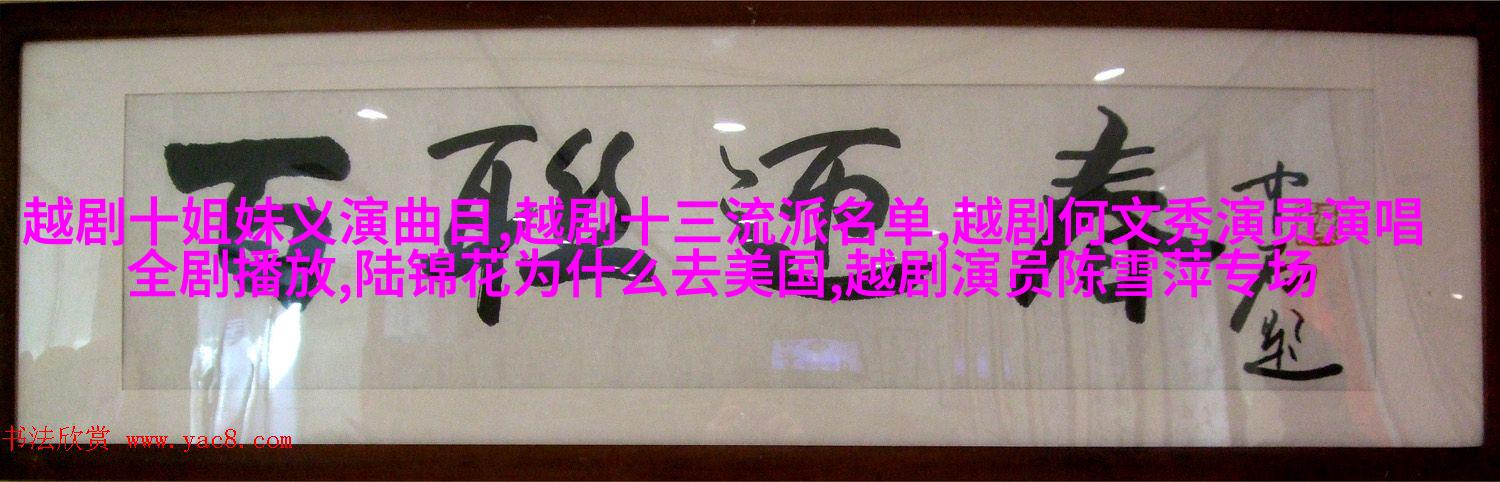 百联迎春
越剧十姐妹义演曲目,越剧十三流派名单,越剧何文秀演员演唱
全剧播放,陆锦花为什么去美国,越剧演员陈雪萍专场
书法欣赏 www.yac8.com